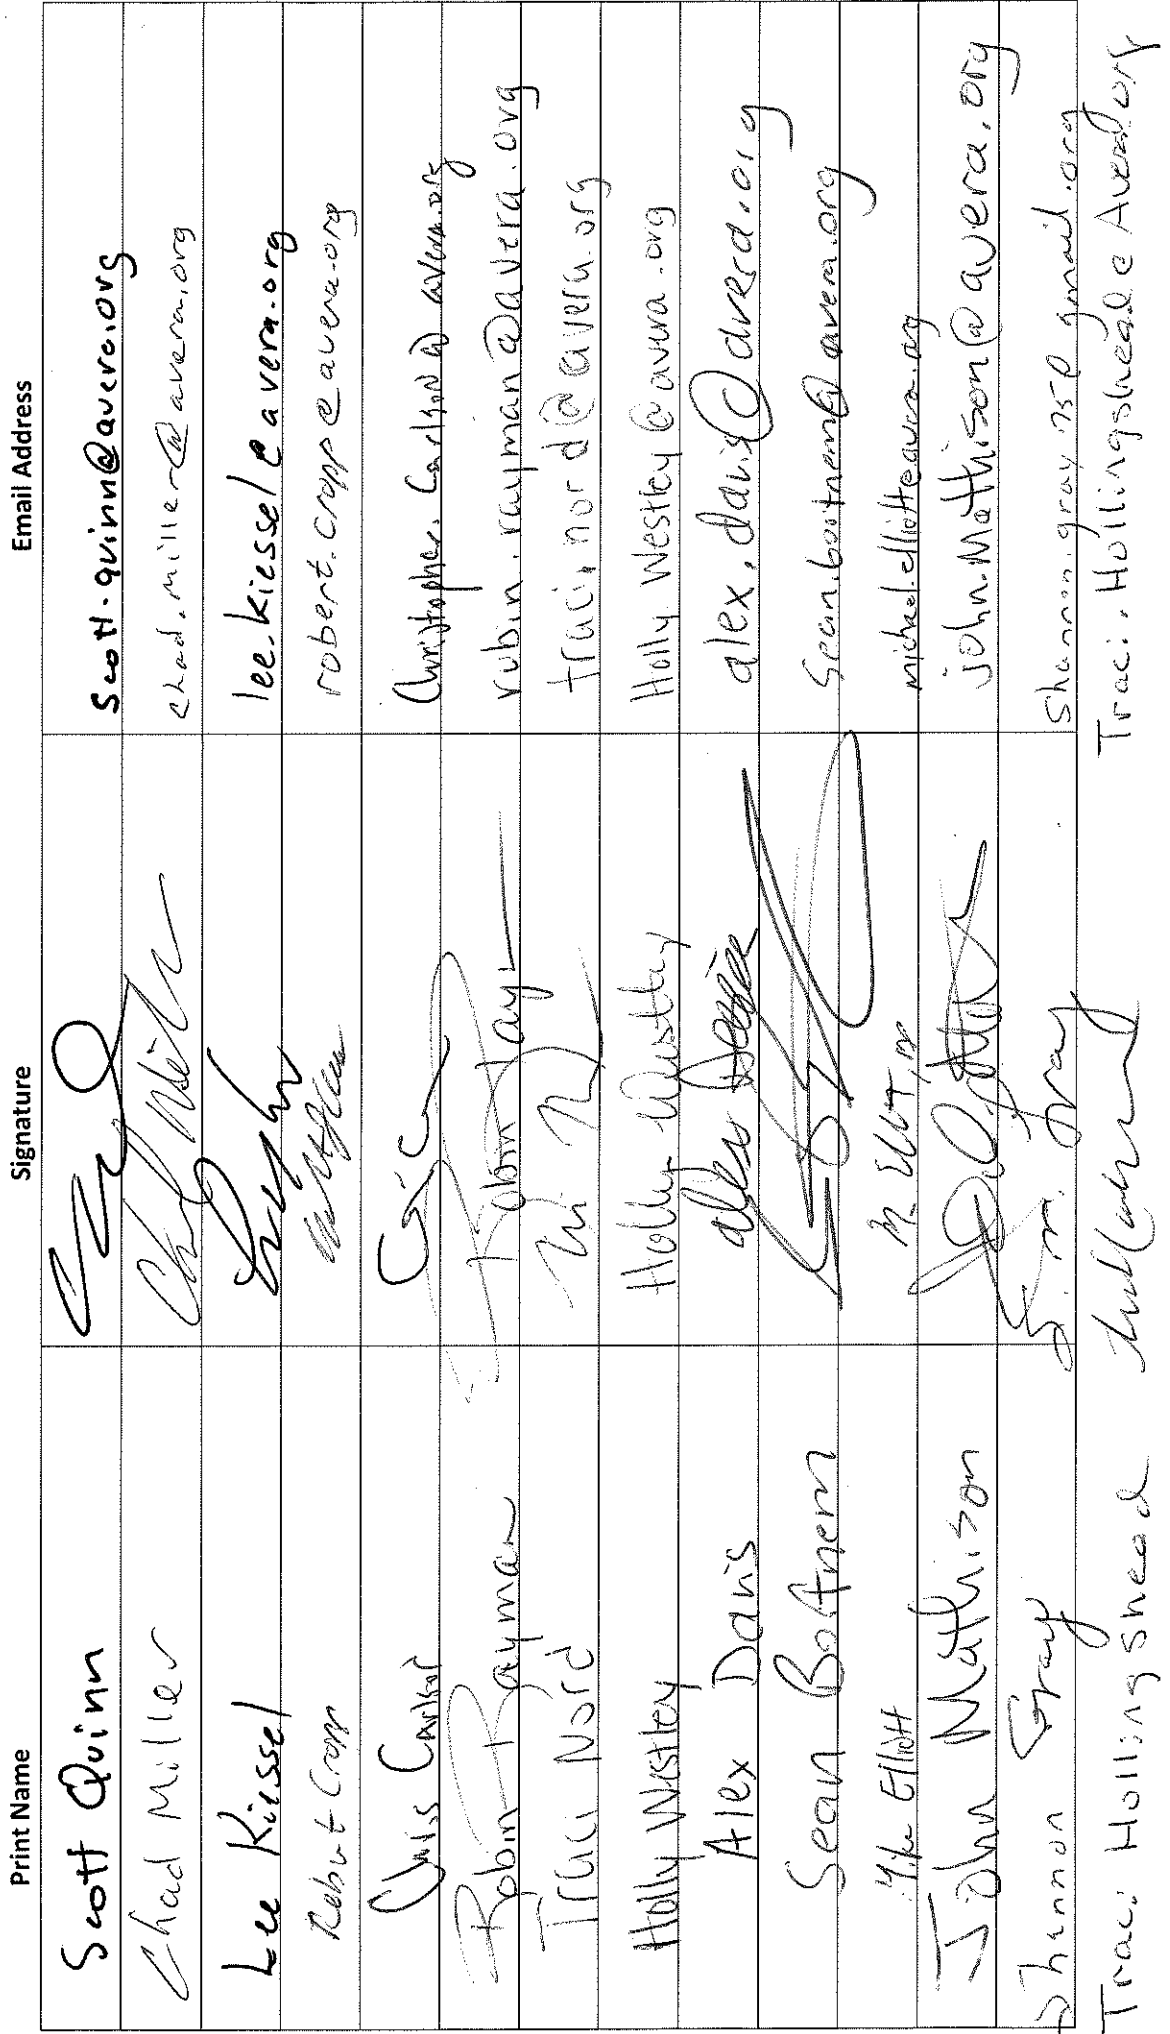 Print Name Signature Email Address
Scott Quinn scott.quinn@avera.org
Chad Miller Chad Miller chad.miller@avera.org
Lee Kiessel lee.kiessel@avera.org
Robert Cropp robert.cropp@avera.org
Chris Carlson Christopher.Carlson@avera.org
Robin Rayman Robin Raym robin.rayman@avera.org
Traci Nord traci.nord@avera.org
Holly Westley Holly Westley Holly.Westley@avera.org
Alex Davis alex.davis@avera.org
Sean Bootnem sean.bootnem@avera.org
Mike Elliott michael.elliott@avera.org
John Mathison john.Mathison@avera.org
Shannon Gray S. m. Gray shannon.gray.75@gmail.org
Traci Hollingshead Traci.Hollingshead@Avera.org